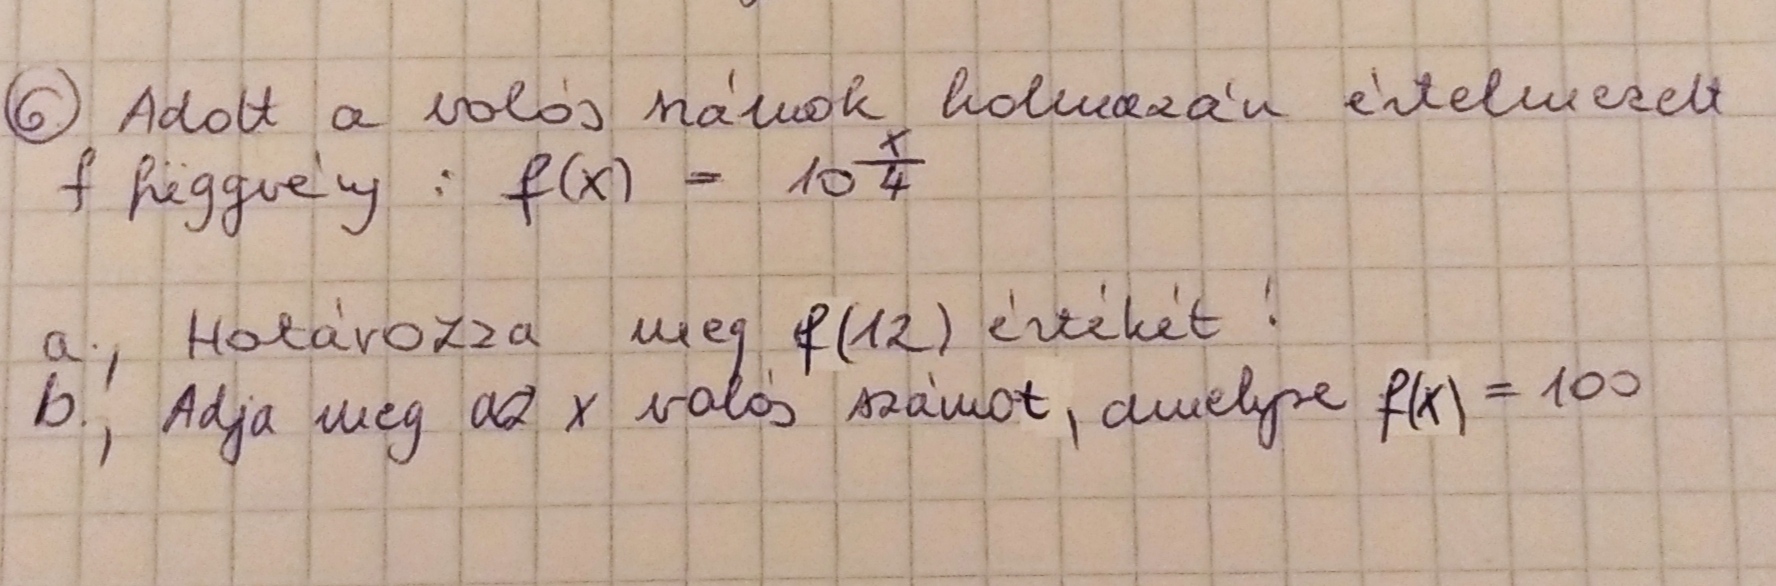 6. Adott a valós számok halmazán értelmezett
f függvény : f(x) = 10^(x/4)
a., Határozza meg f(12) értékét!
b., Adja meg az x valós számot, amelyre f(x) = 100